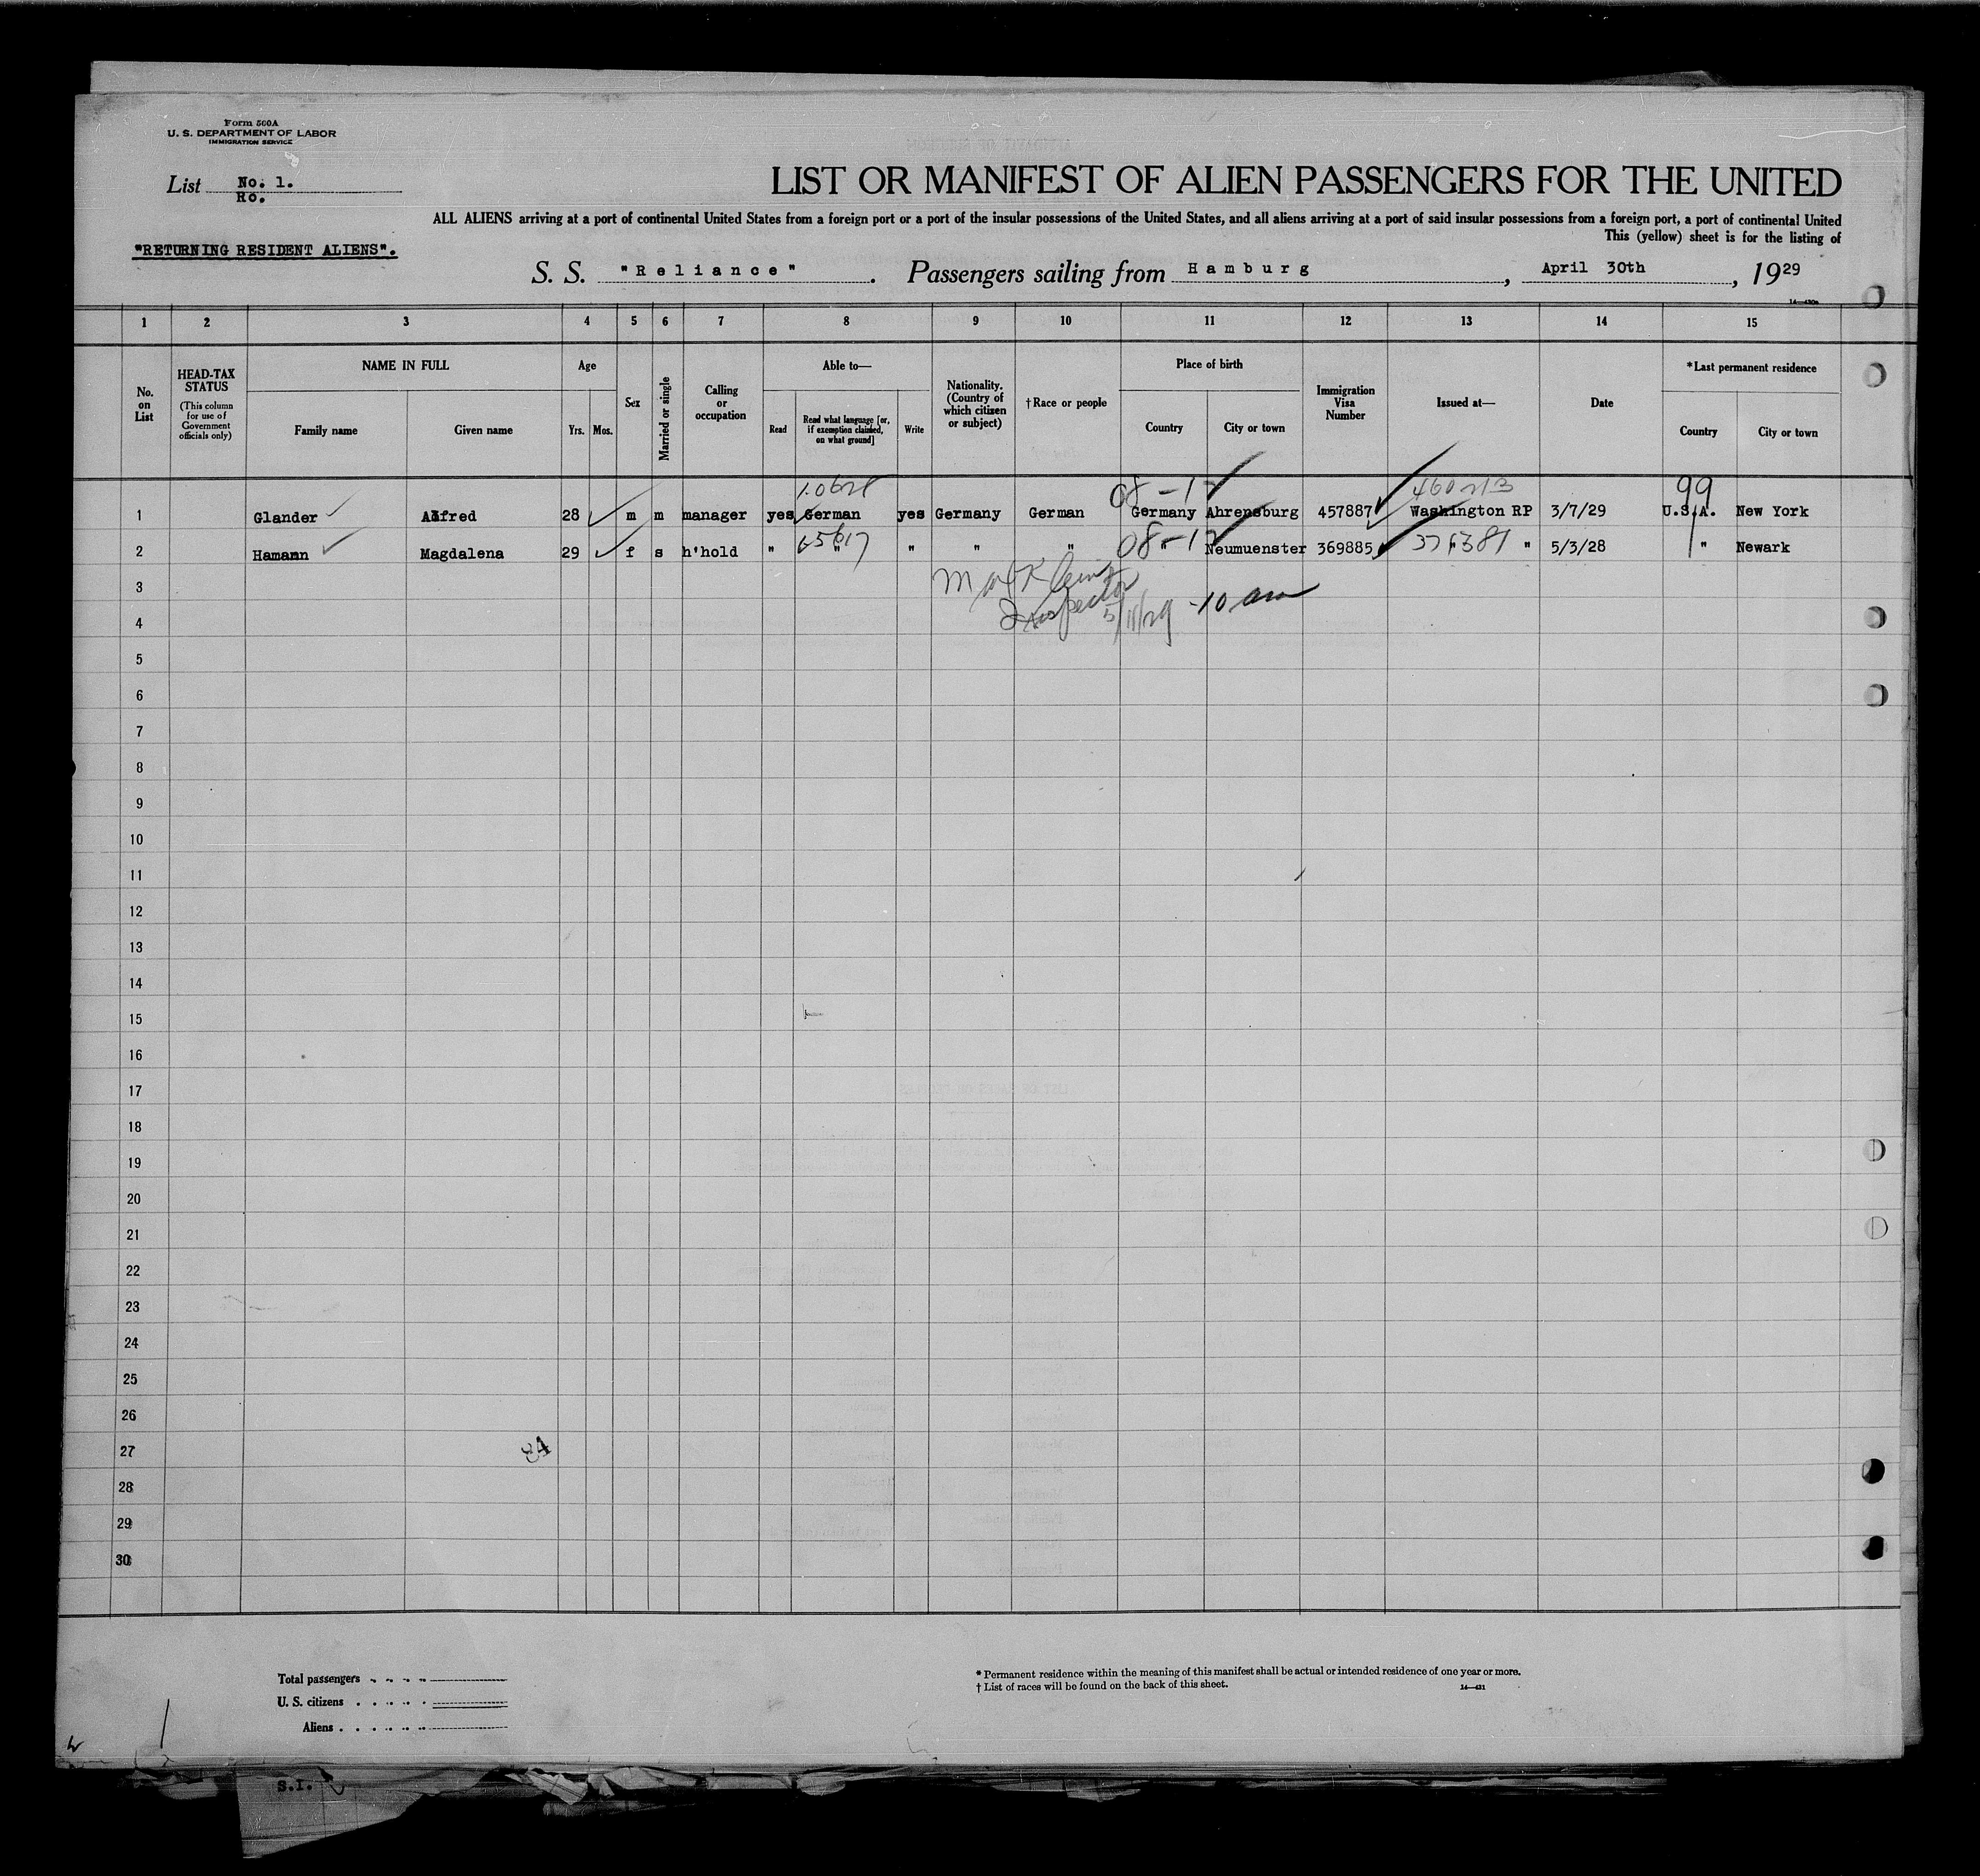 Form 500A
U. S. DEPARTMENT OF LABOR
IMMIGRATION SERVICE
List No. 1.
Ro.
LIST OR MANIFEST OF ALIEN PASSENGERS FOR THE UNITED
ALL ALIENS arriving at a port of continental United States from a foreign port or a port of the insular possessions of the United States, and all aliens arriving at a port of said insular possessions from a foreign port, a port of continental United
This (yellow) sheet is for the listing of
"RETURNING RESIDENT ALIENS".
S. S. "Reliance". Passengers sailing from Hamburg, April 30th, 1929
1 2 3 4 5 6 7 8 9 10 11 12 13 14 15
No. on List
HEAD-TAX STATUS
(This column for use of Government officials only)
NAME IN FULL
Family name Given name
Age
Yrs. Mos.
Sex
Married or single
Calling or occupation
Able to—
Read
Read what language [or, if exemption claimed, on what ground]
Write
Nationality. (Country of which citizen or subject)
† Race or people
Place of birth
Country City or town
Immigration Visa Number
Issued at—
Date
*Last permanent residence
Country City or town
08-1 99
1 Glander Alfred 28 m m manager yes German yes Germany German Germany Ahrensburg 457887 Washington RP 3/7/29 U.S.A. New York
08-1
2 Hamann Magdalena 29 f s h'hold " " " " " " Neumuenster 369885 " " 5/3/28 " Newark
3
Inspector 5/11/29 -10 am
4
5
6
7
8
9
10
11
12
13
14
15
16
17
18
19
20
21
22
23
24
25
26
27
28
29
30
84
Total passengers
U. S. citizens
Aliens
* Permanent residence within the meaning of this manifest shall be actual or intended residence of one year or more.
† List of races will be found on the back of this sheet.
14—431
S.I.